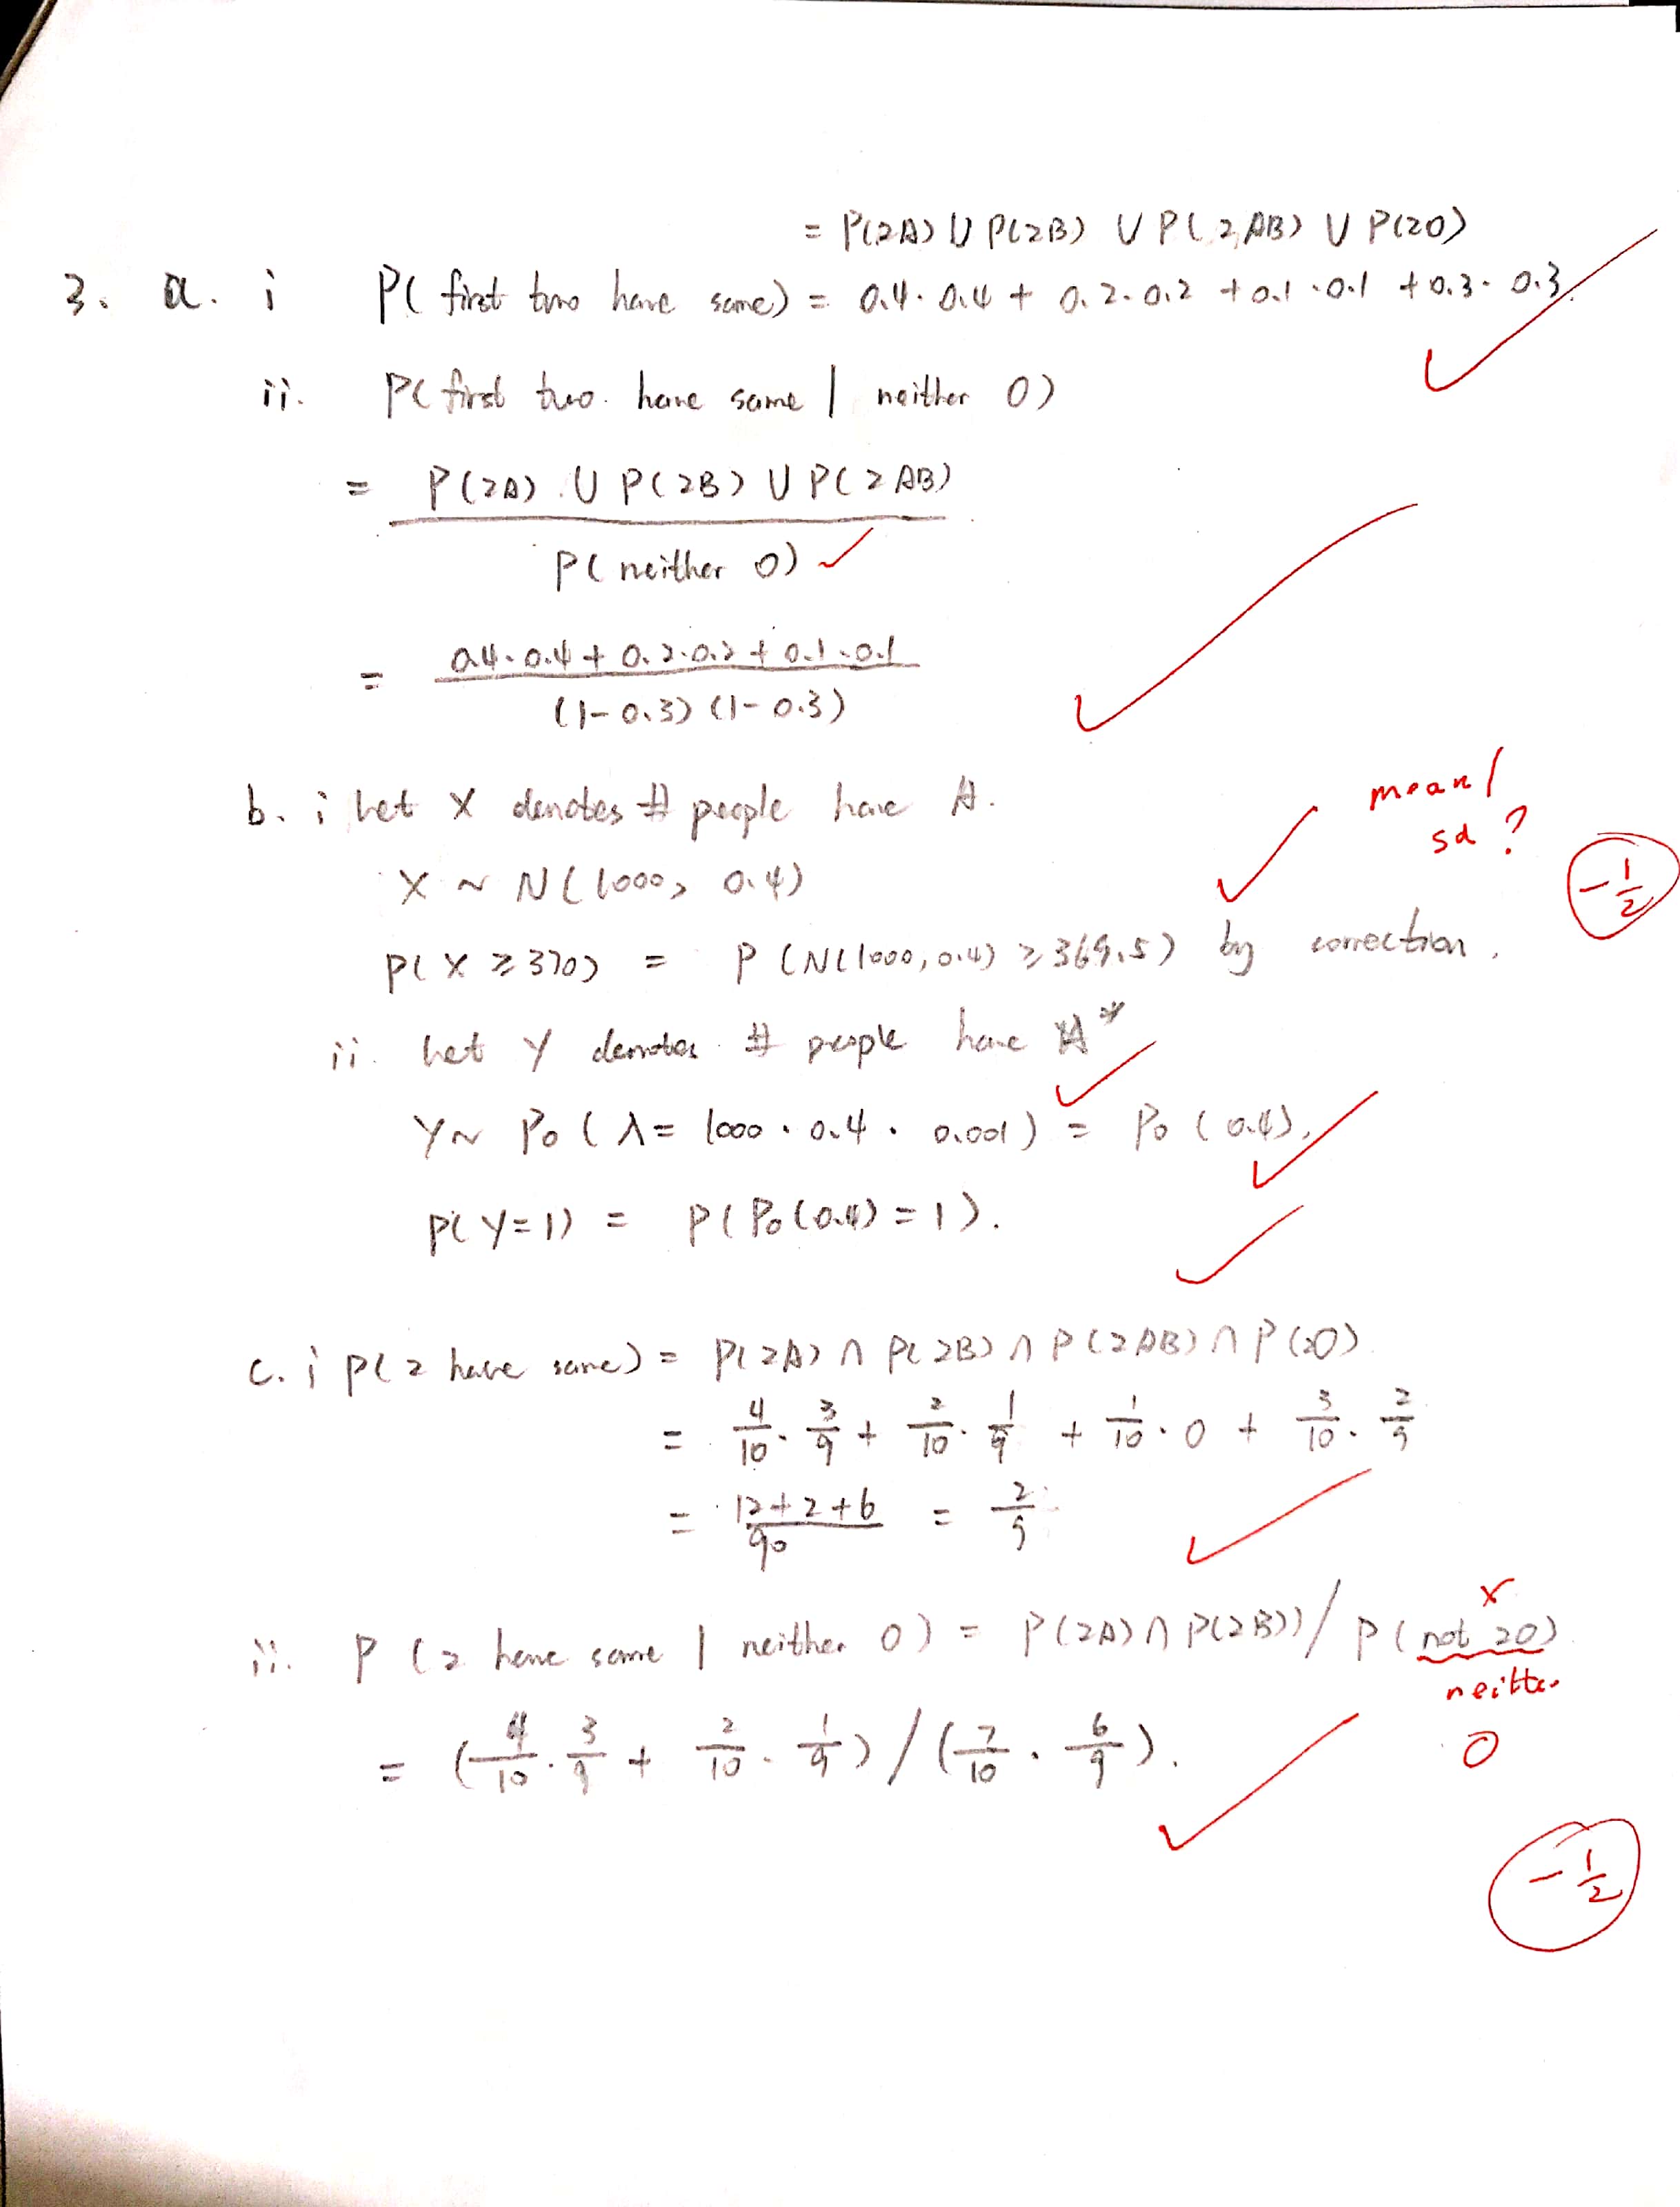 = P(2A) ∪ P(2B) ∪ P(2AB) ∪ P(2O)
3. a. i P( first two have same) = 0.4·0.4 + 0.2·0.2 + 0.1·0.1 + 0.3·0.3.
ii. P( first two have same | neither O)
= P(2A) ∪ P(2B) ∪ P(2AB)
P( neither O)
= 0.4·0.4 + 0.2·0.2 + 0.1·0.1
(1-0.3) (1-0.3)
b. i Let X denotes # people have A.
mean/
sd ?
X ~ N(1000, 0.4)
-1/2
P(X ≥ 370) = P (N(1000, 0.4) ≥ 369.5) by correction.
ii. Let Y denotes # people have A*
Y ~ Po (λ = 1000 · 0.4 · 0.001) = Po (0.4).
P(Y=1) = P(Po(0.4) = 1).
c. i P(2 have same) = P(2A) ∩ P(2B) ∩ P(2AB) ∩ P(2O)
= 4/10 · 3/9 + 2/10 · 1/9 + 1/10 · 0 + 3/10 · 2/9
= 12+2+6/90 = 2/9
x
ii. P (2 have same | neither O) = P(2A) ∩ P(2B)) / P (not 2O)
neither
O
= (4/10 · 3/9 + 2/10 · 1/9) / (7/10 · 6/9).
-1/2